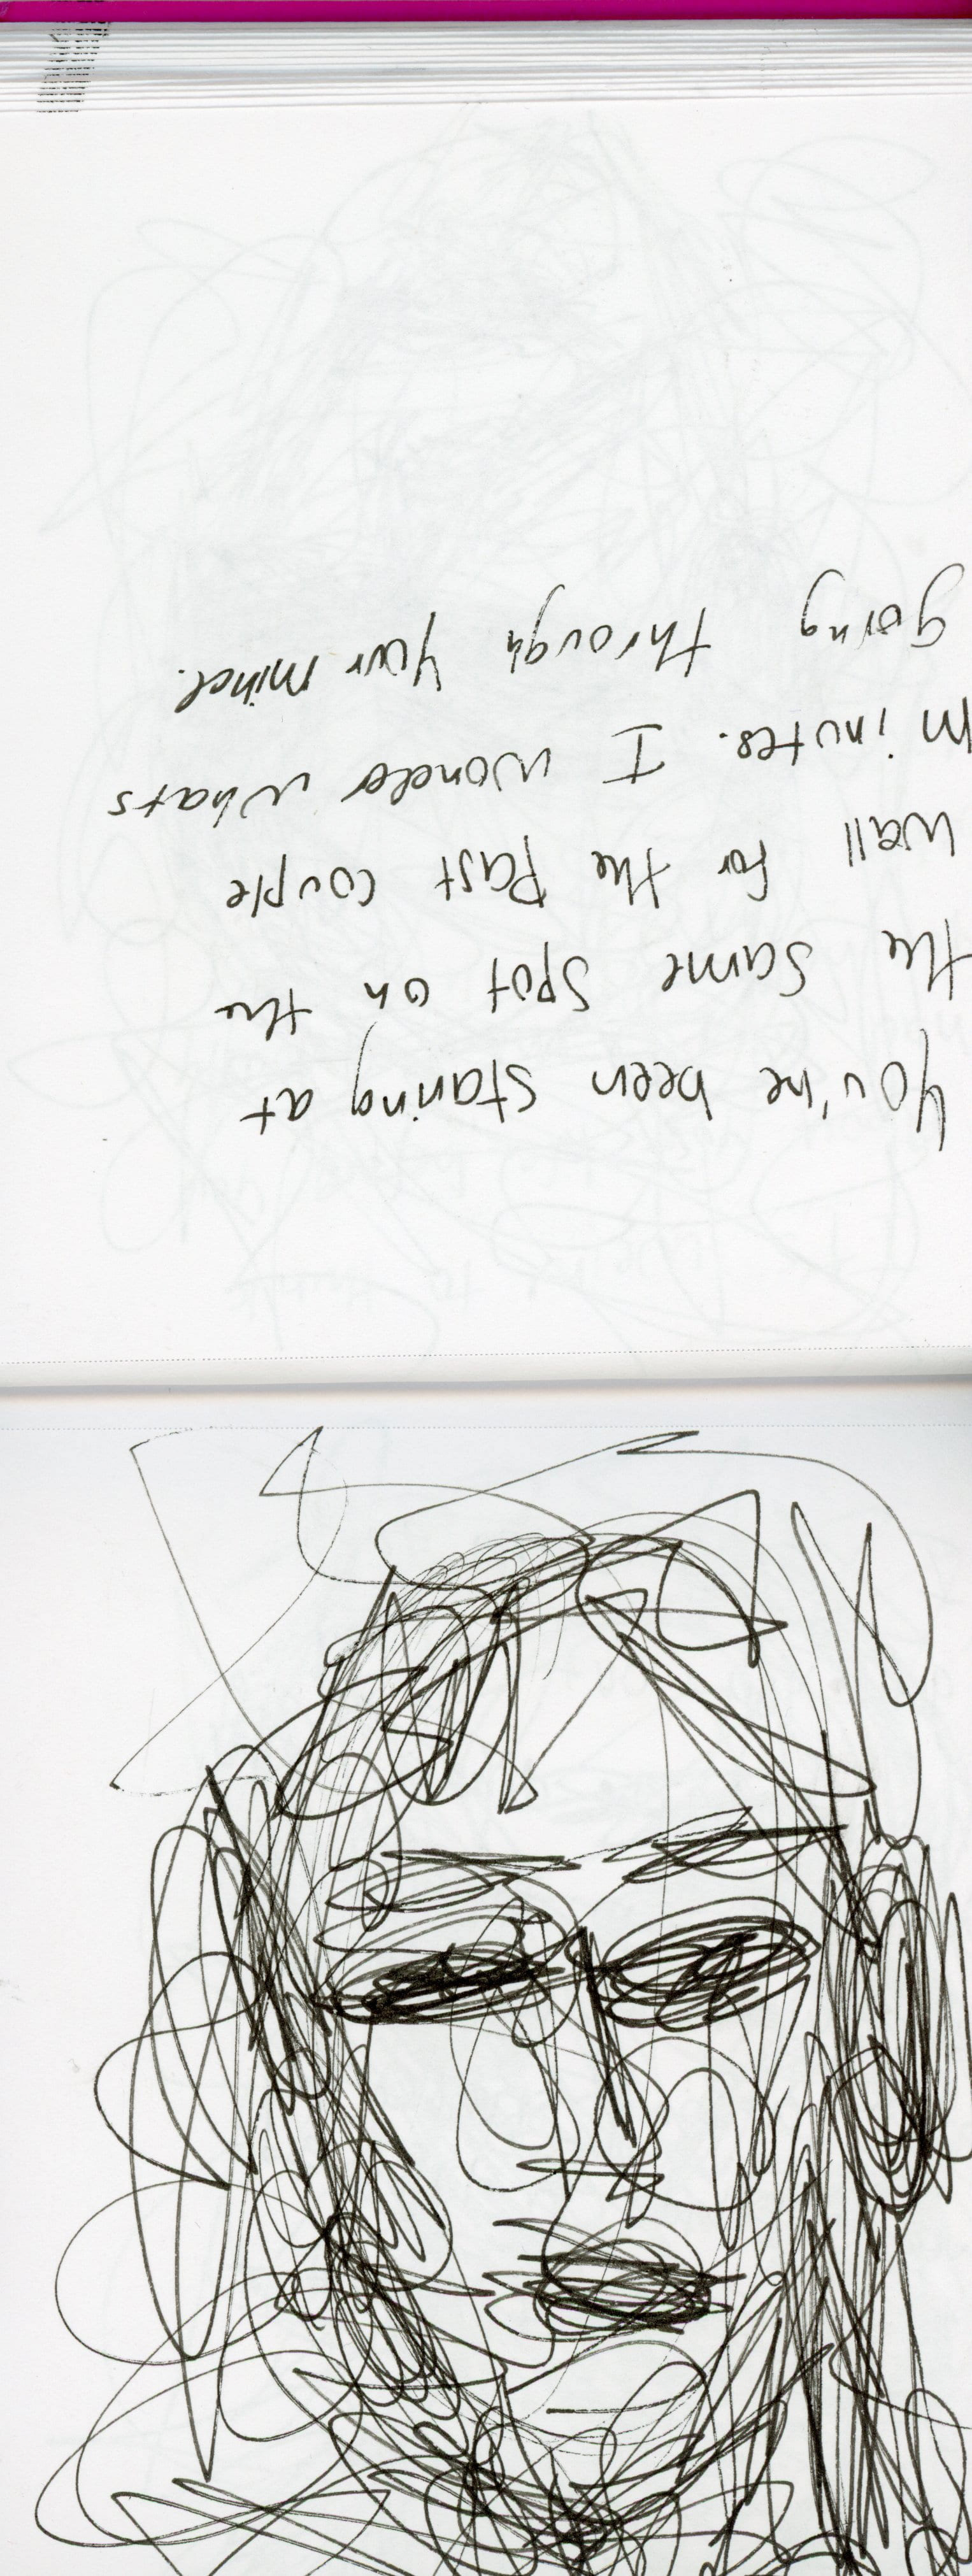 You've been staring at
the same spot on the
wall for the past couple
minutes. I wonder whats
going through your mind.